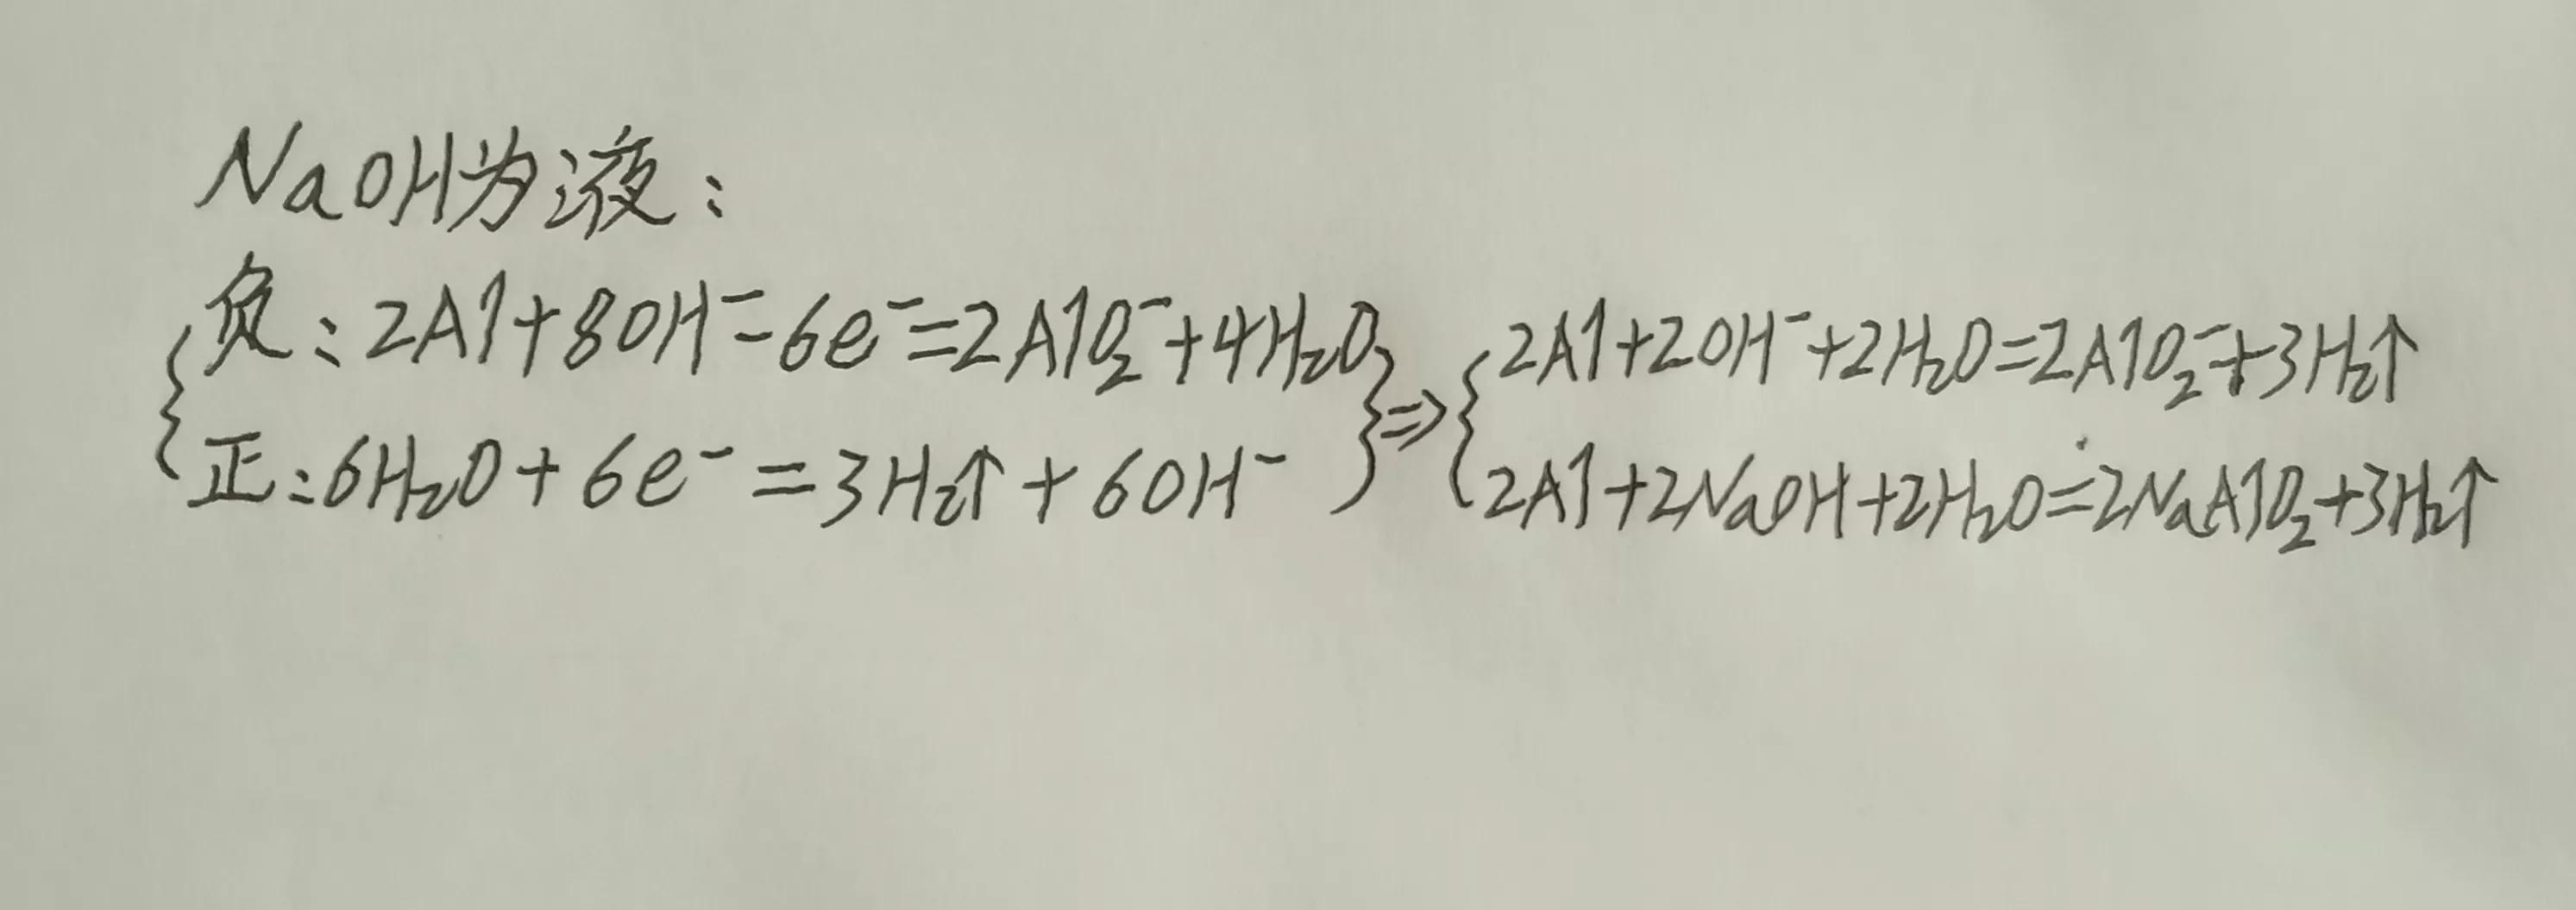 NaOH为液：
负：2Al+8OH⁻-6e⁻=2AlO₂⁻+4H₂O
正：6H₂O+6e⁻=3H₂↑+6OH⁻
⇒
2Al+2OH⁻+2H₂O=2AlO₂⁻+3H₂↑
2Al+2NaOH+2H₂O=2NaAlO₂+3H₂↑